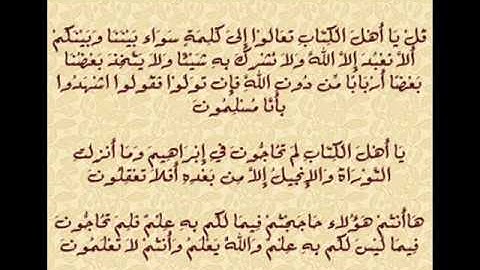 قُلْ يَا أَهْلَ الْكِتَابِ تَعَالَوْا إِلَى كَلِمَةٍ سَوَاءٍ بَيْنَنَا وَبَيْنَكُمْ
أَلَّا نَعْبُدَ إِلَّا اللَّهَ وَلَا نُشْرِكَ بِهِ شَيْئًا وَلَا يَتَّخِذَ بَعْضُنَا
بَعْضًا أَرْبَابًا مِّن دُونِ اللَّهِ فَإِن تَوَلَّوْا فَقُولُوا اشْهَدُوا
بِأَنَّا مُسْلِمُونَ
يَا أَهْلَ الْكِتَابِ لِمَ تُحَاجُّونَ فِي إِبْرَاهِيمَ وَمَا أُنزِلَتِ
التَّوْرَاةُ وَالْإِنجِيلُ إِلَّا مِن بَعْدِهِ أَفَلَا تَعْقِلُونَ
هَاأَنتُمْ هَؤُلَاءِ حَاجَجْتُمْ فِيمَا لَكُم بِهِ عِلْمٌ فَلِمَ تُحَاجُّونَ
فِيمَا لَيْسَ لَكُم بِهِ عِلْمٌ وَاللَّهُ يَعْلَمُ وَأَنتُمْ لَا تَعْلَمُونَ